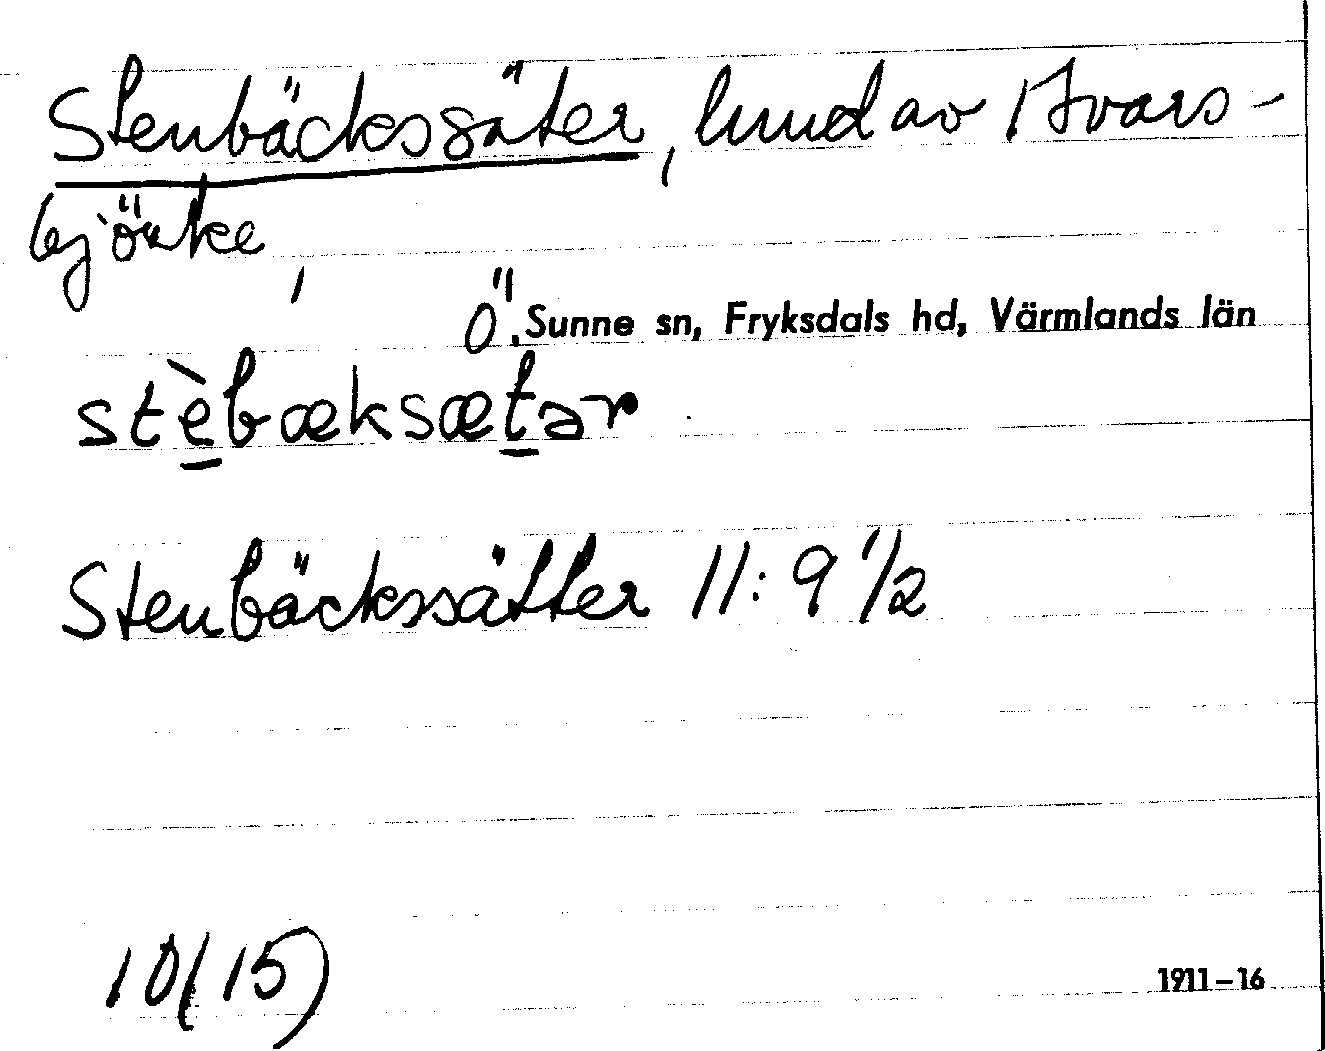 Stenbäckssäter, hmd av 1 Ivars-
björke,
Ö. Sunne sn, Fryksdals hd, Värmlands län
stèbæksætər
Stenbäckssätter 11:9 1/2
10(15)
1911–16